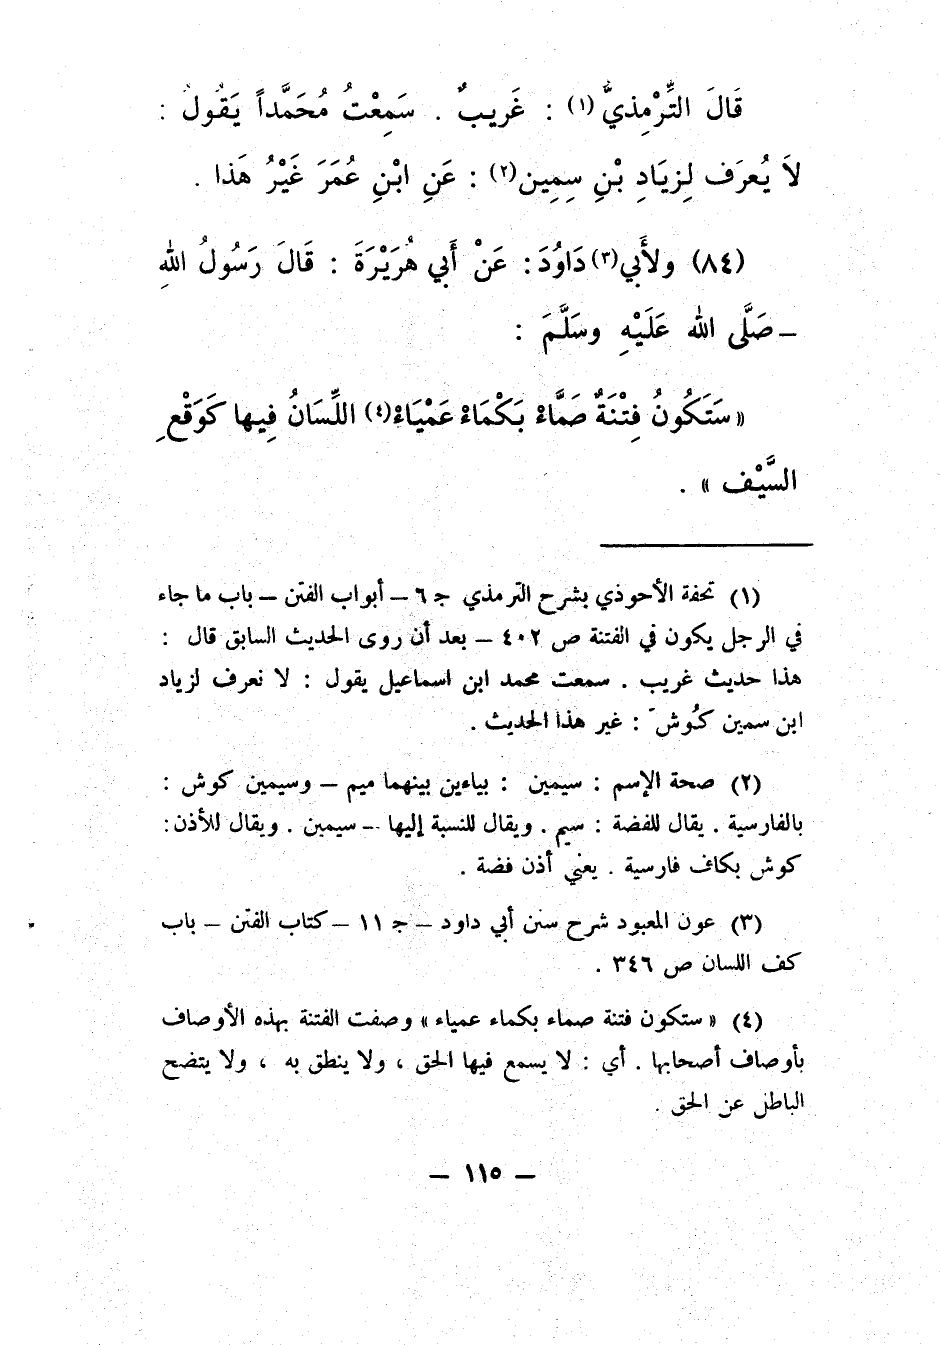 قَالَ التِّرْمِذيُّ (١) : غَريبٌ . سَمِعْتُ مُحَمَّداً يَقُولُ :
لاَ يُعرَف لِزيَادِ بْنِ سِمِين(٢) : عَنِ ابْنِ عُمَرَ غَيْرُ هَذا .
(٨٤) ولأَبي(٣) دَاوُدَ : عَنْ أَبي هُرَيْرَةَ : قَالَ رَسُولُ اللهِ
ــ صَلَّى الله عَلَيْهِ وسَلَّمَ :
« سَتَكُونُ فِتْنَةٌ صَمَّاءْ بَكْمَاءْ عَمْيَاءْ(٤) اللِّسَانُ فِيها كَوَقْعِ
السَّيْف » .
(١) تحفة الأحوذي بشرح الترمذي جـ ٦ ــ أبواب الفتن ــ باب ما جاء
في الرجل يكون في الفتنة ص ٤٠٢ ــ بعد أن روى الحديث السابق قال :
هذا حديث غريب . سمعت محمد ابن اسماعيل يقول : لا نعرف لزياد
ابن سمين كُوش َ : غير هذا الحديث .
(٢) صحة الإسم : سيمين : بياءين بينهما ميم ــ وسيمين كوش :
بالفارسية . يقال للفضة : سيم . ويقال للنسبة إليها ــ سيمين . ويقال للأذن :
كوش بكاف فارسية . يعني أذن فضة .
(٣) عون المعبود شرح سنن أبي داود ــ جـ ١١ ــ كتاب الفتن ــ باب
كف اللسان ص ٣٤٦ .
(٤) « ستكون فتنة صماء بكماء عمياء » وصفت الفتنة بهذه الأوصاف
بأوصاف أصحابها . أي : لا يسمع فيها الحق ، ولا ينطق به ، ولا يتضح
الباطل عن الحق .
ــ ١١٥ ــ